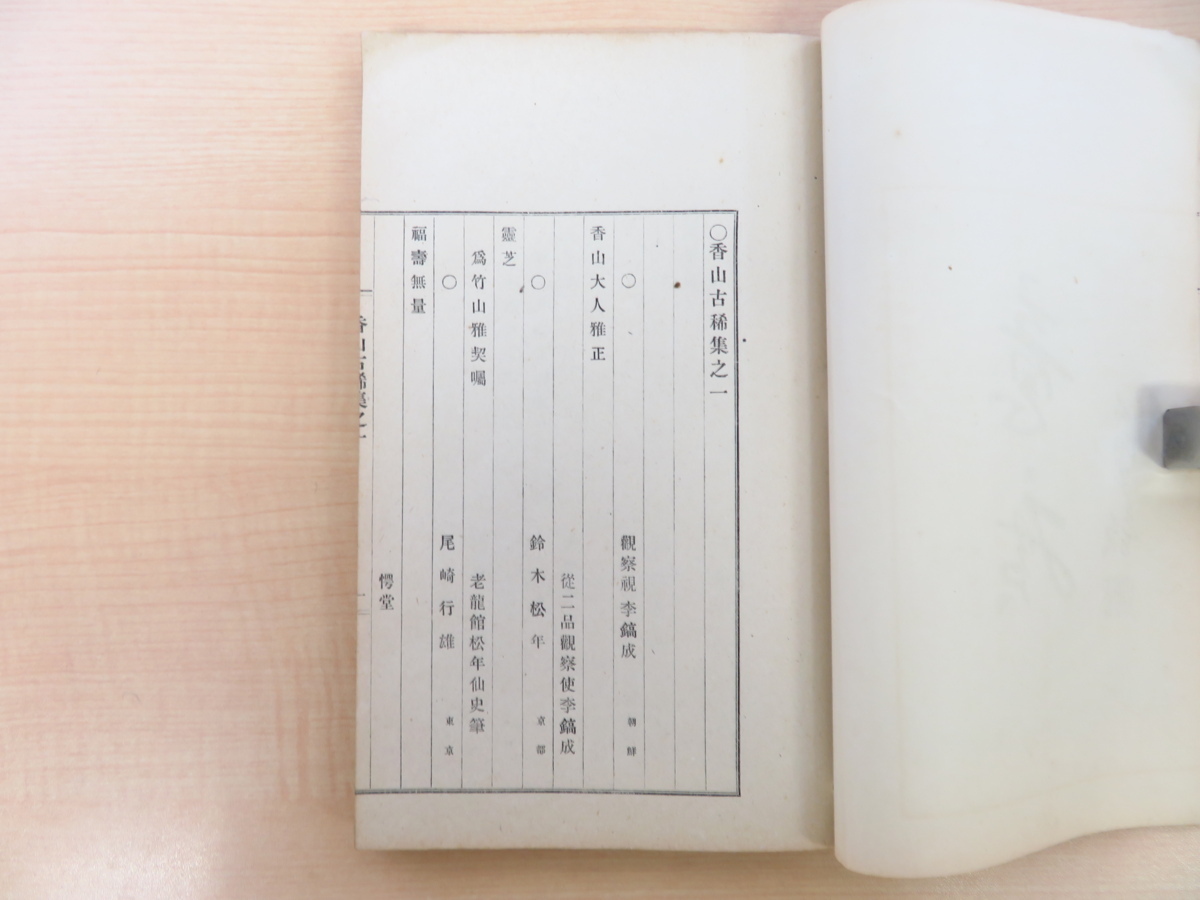 〇香山古稀集之一
〇 觀察視 李鎬成 朝鮮
香山大人雅正
從二品觀察使李鎬成
〇 鈴木松年 京都
靈芝
爲竹山雅契囑 老龍館松年仙史筆
〇 尾崎行雄 東京
福壽無量
愕堂
香山古稀集之一 一